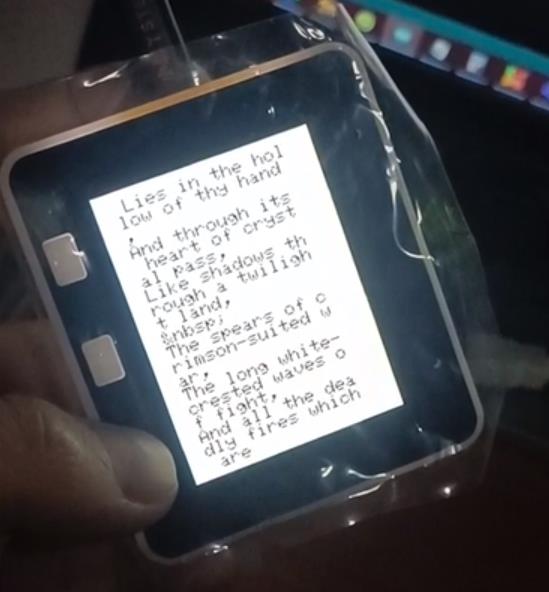 Lies in the hol
low of thy hand
,
And through its
heart of cryst
al pass,
Like shadows th
rough a twiligh
t land,
&nbsp;
The spears of c
rimson-suited w
ar,
The long white-
crested waves o
f fight,
And all the dea
dly fires which
are